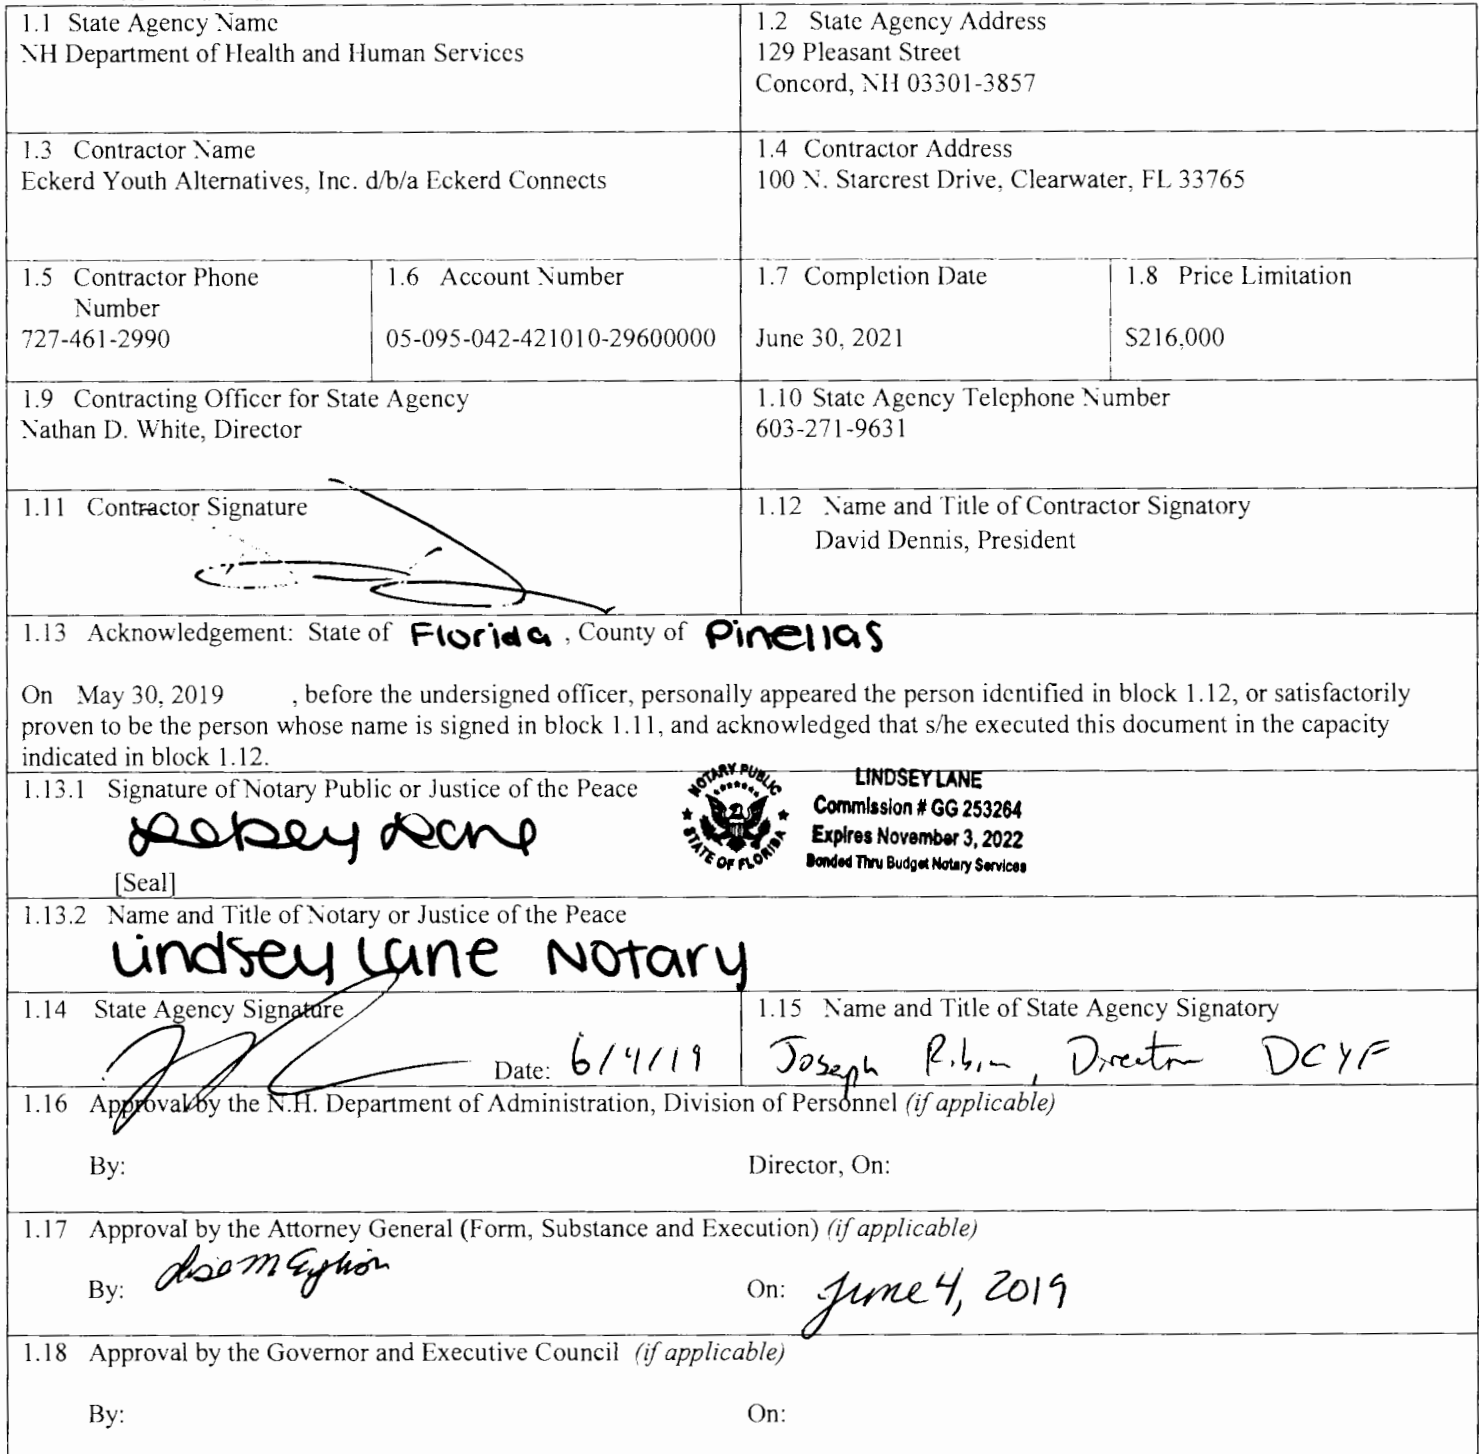 1.1 State Agency Name
NH Department of Health and Human Services
1.2 State Agency Address
129 Pleasant Street
Concord, NH 03301-3857
1.3 Contractor Name
Eckerd Youth Alternatives, Inc. d/b/a Eckerd Connects
1.4 Contractor Address
100 N. Starcrest Drive, Clearwater, FL 33765
1.5 Contractor Phone
Number
727-461-2990
1.6 Account Number
05-095-042-421010-29600000
1.7 Completion Date
June 30, 2021
1.8 Price Limitation
$216,000
1.9 Contracting Officer for State Agency
Nathan D. White, Director
1.10 State Agency Telephone Number
603-271-9631
1.11 Contractor Signature
1.12 Name and Title of Contractor Signatory
David Dennis, President
1.13 Acknowledgement: State of Florida , County of Pinellas
On May 30, 2019 , before the undersigned officer, personally appeared the person identified in block 1.12, or satisfactorily
proven to be the person whose name is signed in block 1.11, and acknowledged that s/he executed this document in the capacity
indicated in block 1.12.
1.13.1 Signature of Notary Public or Justice of the Peace
[Seal]
NOTARY PUBLIC
STATE OF FLORIDA
LINDSEY LANE
Commission # GG 253264
Expires November 3, 2022
Bonded Thru Budget Notary Services
1.13.2 Name and Title of Notary or Justice of the Peace
Lindsey Lane Notary
1.14 State Agency Signature
Date: 6/4/19
1.15 Name and Title of State Agency Signatory
Joseph , Director DCYF
1.16 Approval by the N.H. Department of Administration, Division of Personnel (if applicable)
By:
Director, On:
1.17 Approval by the Attorney General (Form, Substance and Execution) (if applicable)
By:
On: June 4, 2019
1.18 Approval by the Governor and Executive Council (if applicable)
By:
On: